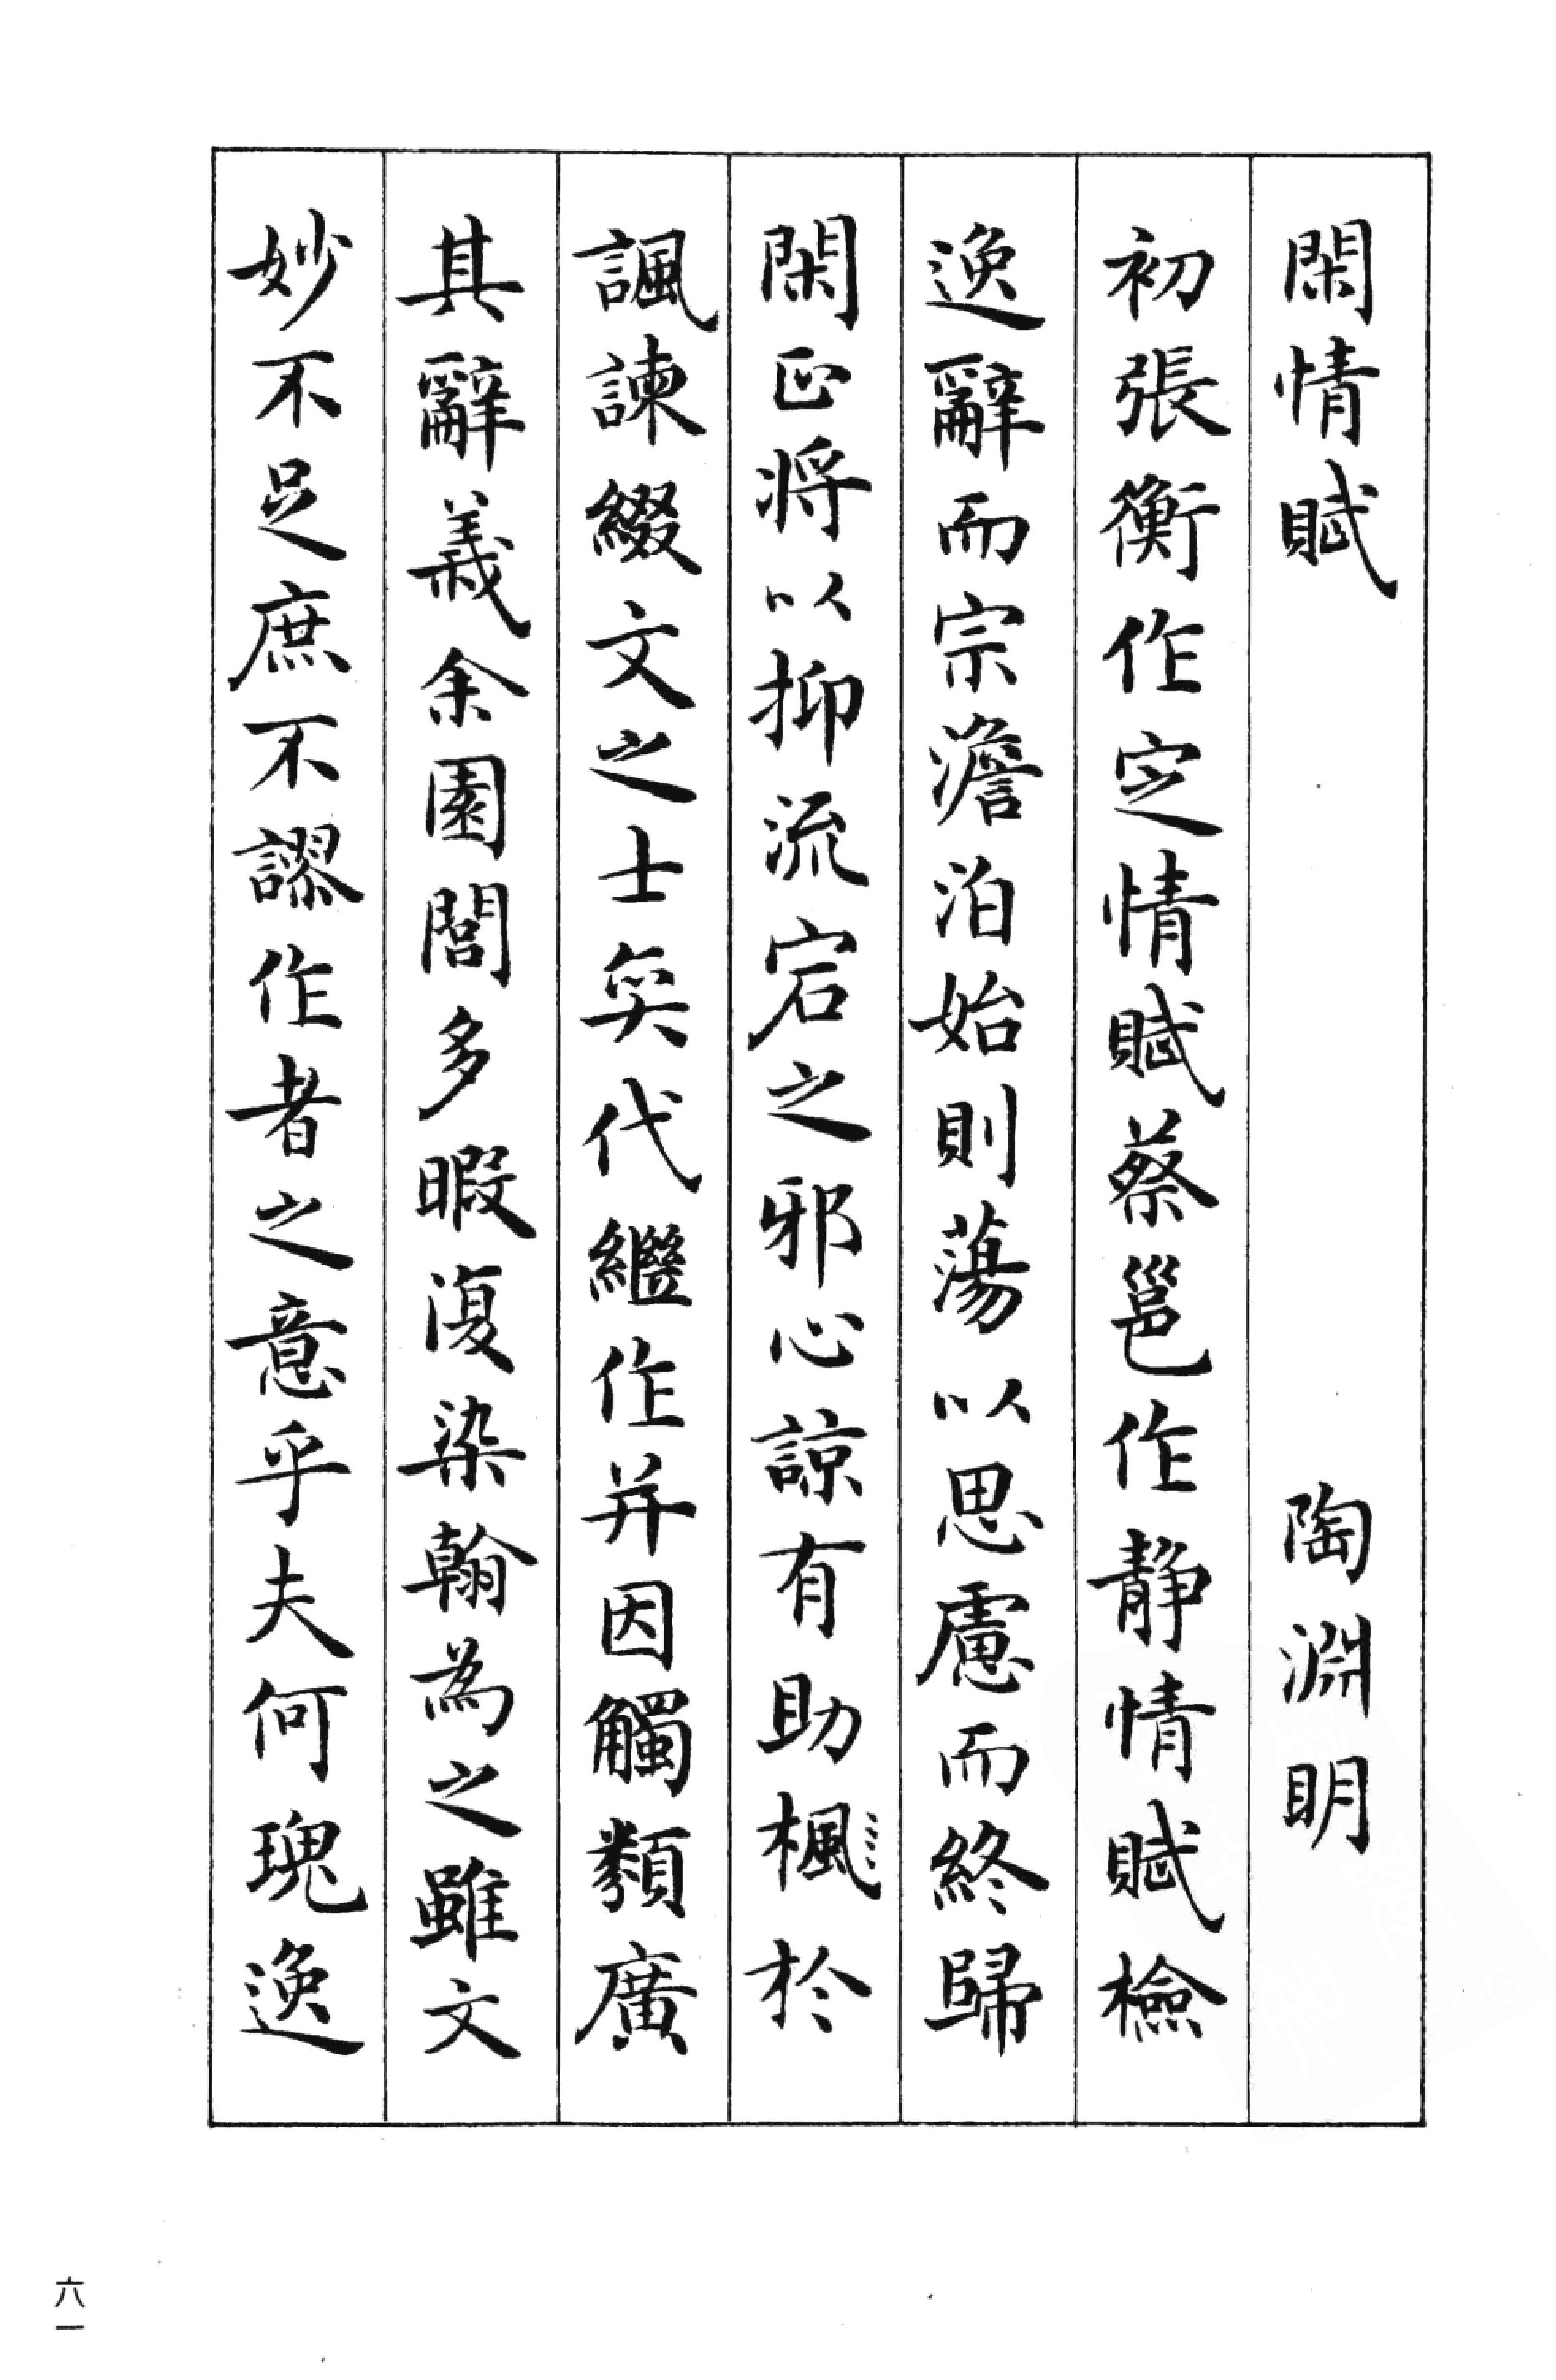 閑情賦 陶淵明
初張衡作定情賦蔡邕作静情賦檢
逸辭而宗澹泊始則蕩以思慮而終歸
閑正將以抑流宕之邪心諒有助楓於
諷諫綴文之士奕代繼作并因觸類廣
其辭義余園閭多暇復染翰為之雖文
妙不足庶不謬作者之意乎夫何瑰逸
六一